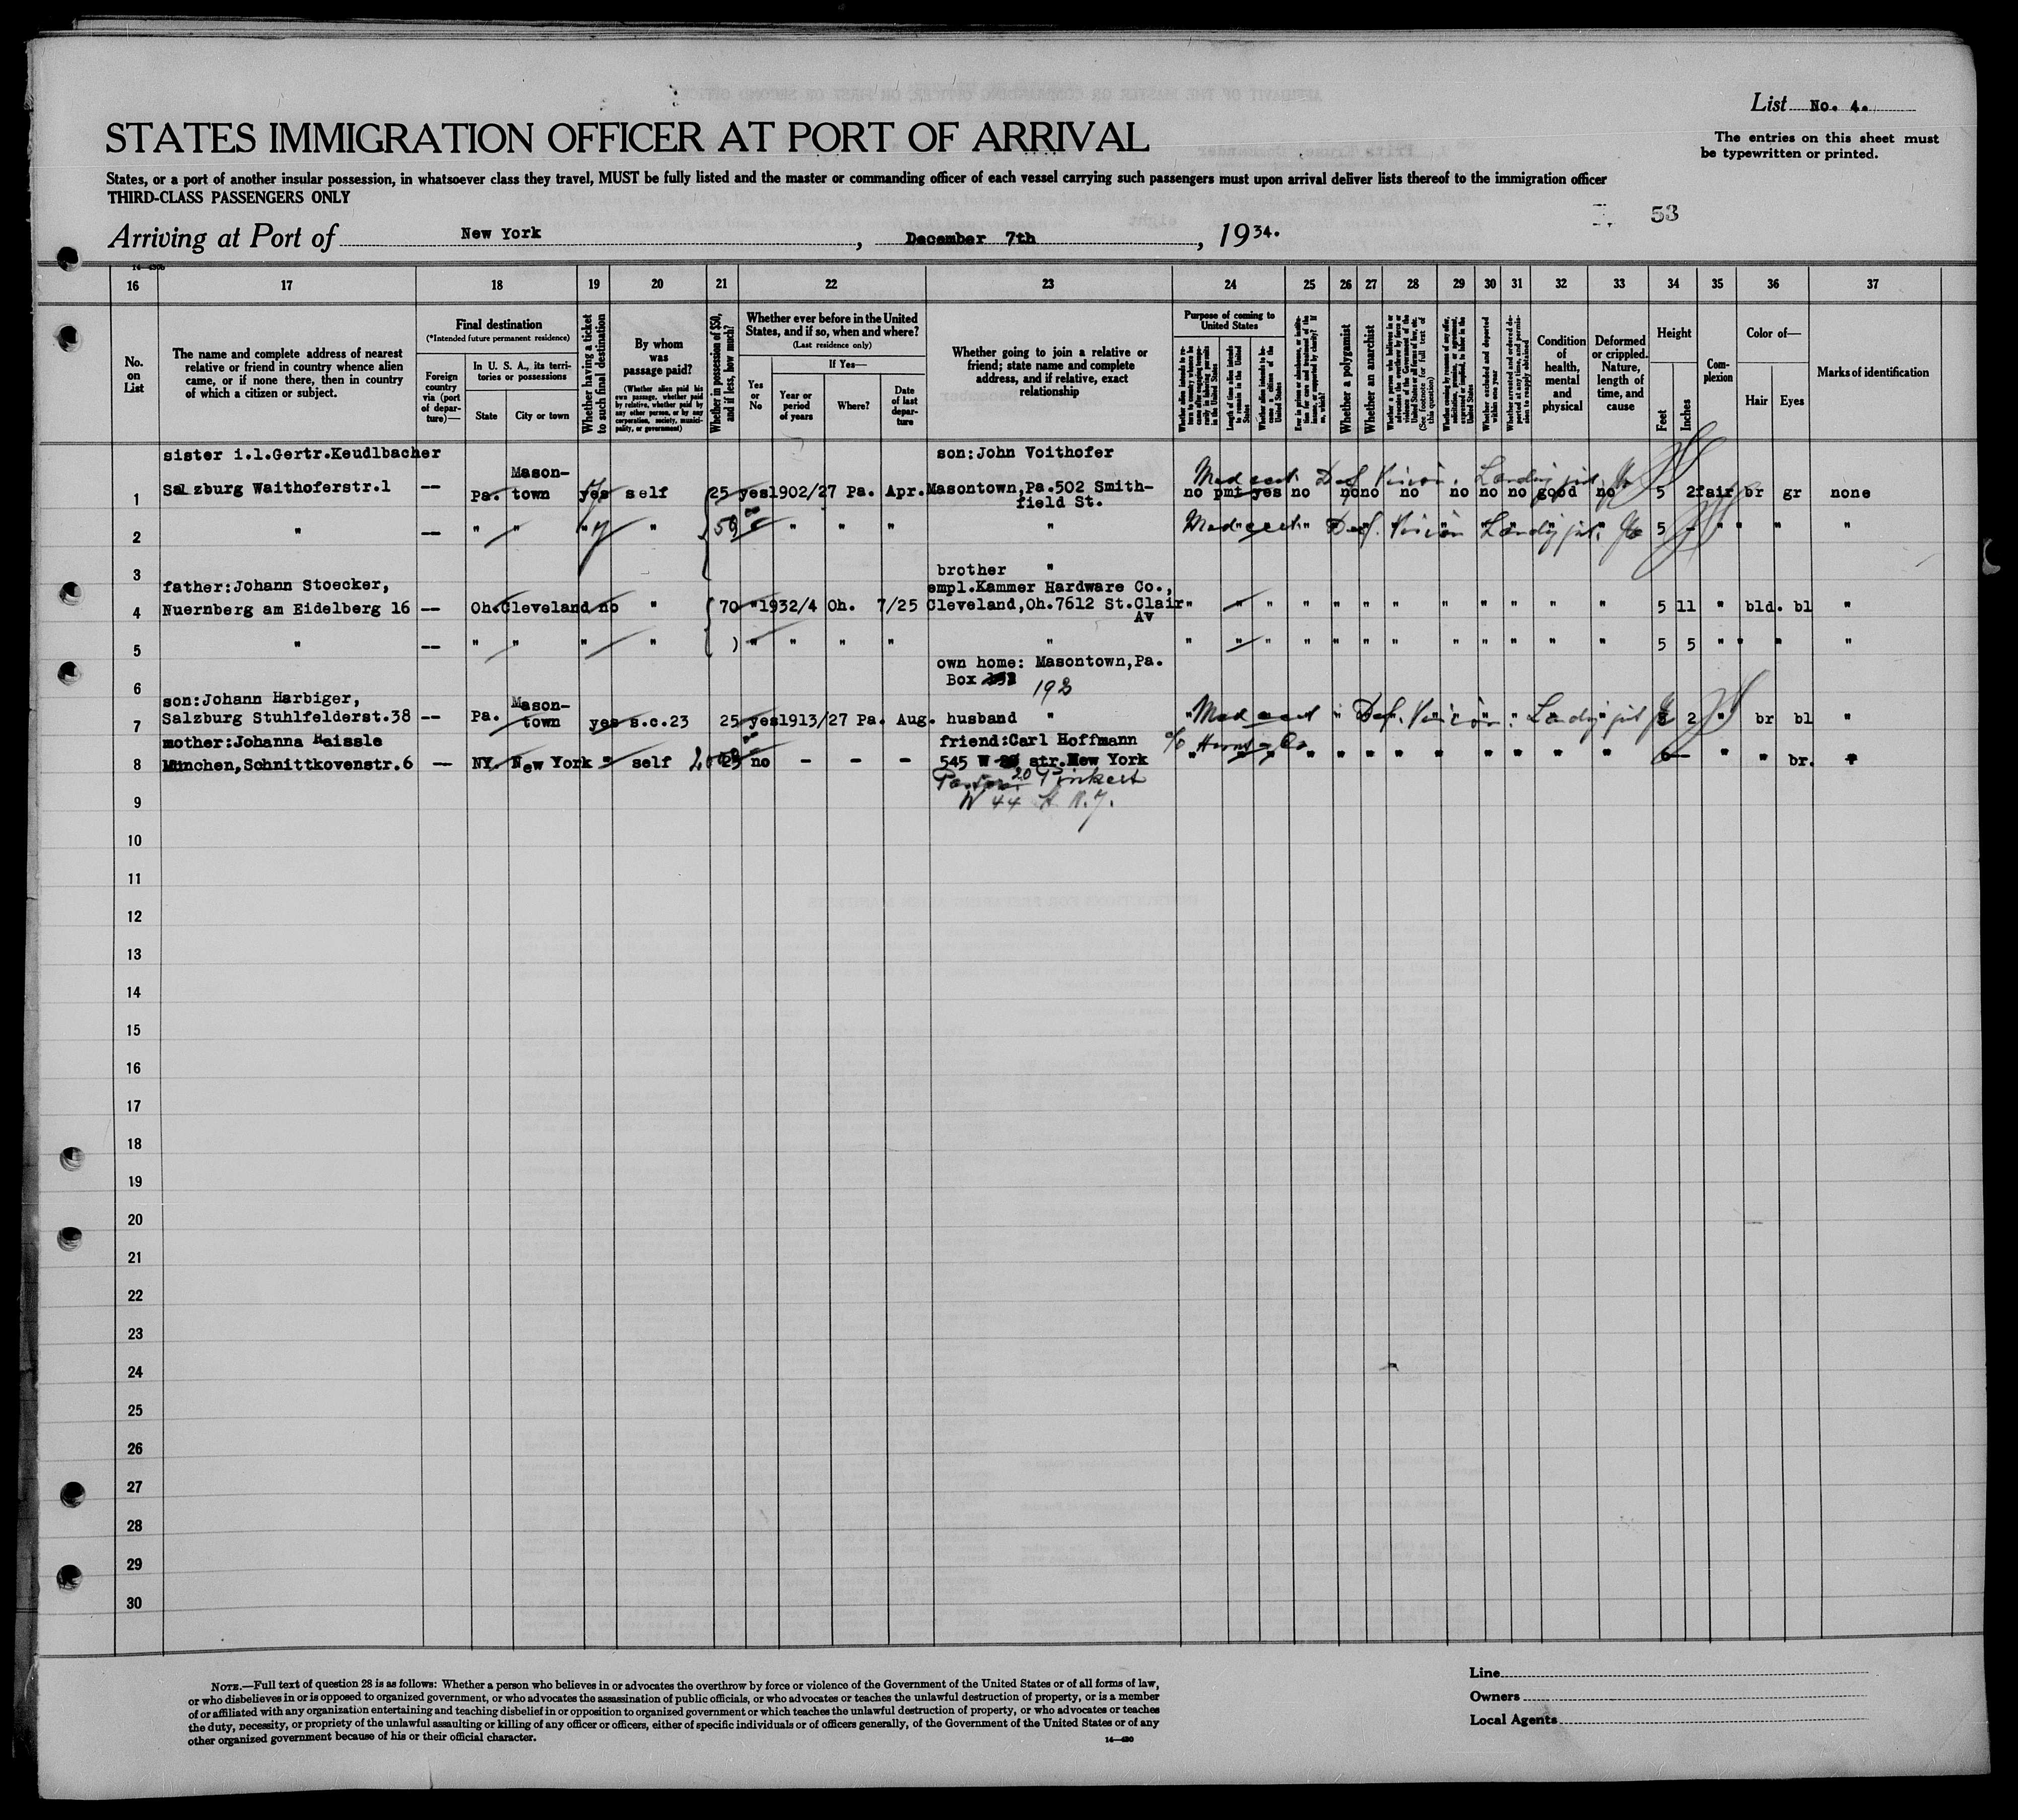 List No. 4.
STATES IMMIGRATION OFFICER AT PORT OF ARRIVAL
The entries on this sheet must
be typewritten or printed.
States, or a port of another insular possession, in whatsoever class they travel, MUST be fully listed and the master or commanding officer of each vessel carrying such passengers must upon arrival deliver lists thereof to the immigration officer
THIRD-CLASS PASSENGERS ONLY
53
Arriving at Port of New York, December 7th, 1934.
16 17 18 19 20 21 22 23 24 25 26 27 28 29 30 31 32 33 34 35 36 37
No. on List
The name and complete address of nearest
relative or friend in country whence alien
came, or if none there, then in country
of which a citizen or subject.
Final destination
(*Intended future permanent residence)
Foreign country via (port of departure)—
In U. S. A., its territories or possessions
State City or town
Whether having a ticket to such final destination
By whom was passage paid?
(Whether alien paid his own passage, whether paid by relative, whether paid by any other person, or by any corporation, society, municipality, or government)
Whether in possession of $50, and if less, how much?
Whether ever before in the United
States, and if so, when and where?
(Last residence only)
Yes or No
If Yes—
Year or period of years
Where?
Date of last departure
Whether going to join a relative or
friend; state name and complete
address, and if relative, exact
relationship
Purpose of coming to United States
Length of time alien intends to remain in the United States
Whether a polygamist
Whether an anarchist
(See footnote for full text of this question)
Condition of health, mental and physical
Deformed or crippled. Nature, length of time, and cause
Height
Feet Inches
Complexion
Color of—
Hair Eyes
Marks of identification
sister i.l.Gertr.Keudlbacher son:John Voithofer
1 Salzburg Waithoferstr.1 -- Pa. Mason-town yes self 25 yes 1902/27 Pa. Apr. Masontown,Pa.502 Smith-field St. no pmt yes no no no no no no no good no 5 2 fair br gr none
Med cert. Def Vision. Landing
2 " -- " " " " 50 " " " " 5 - " " " "
Med cert. Def. Vision Landing
3 brother "
father:Johann Stoecker, empl.Kammer Hardware Co.,
4 Nuernberg am Eidelberg 16 -- Oh. Cleveland no " 70 " 1932/4 Oh. 7/25 Cleveland,Oh.7612 St.Clair Av " " " " " " " " " " " " 5 11 " bld. bl "
5 " -- " " " " ) " " " " " " " " " " " " " " " " " " 5 5 " " " "
own home: Masontown,Pa.
Box 193
6
son:Johann Harbiger,
7 Salzburg Stuhlfelderst.38 -- Pa. Mason-town yes s.c.23 25 yes 1913/27 Pa. Aug. husband " 2 " br bl "
Med cert Def. Vision. Landing
mother:Johanna Haissle friend:Carl Hoffmann
8 München,Schnittkovenstr.6 -- NY. New York " self 25 no - - - 545 W str.New York " " " " " " " " " " " " 6 — " " br. "
W 44 St N.Y.
9
10
11
12
13
14
15
16
17
18
19
20
21
22
23
24
25
26
27
28
29
30
NOTE.—Full text of question 28 is as follows: Whether a person who believes in or advocates the overthrow by force or violence of the Government of the United States or of all forms of law,
or who disbelieves in or is opposed to organized government, or who advocates the assassination of public officials, or who advocates or teaches the unlawful destruction of property, or is a member
of or affiliated with any organization entertaining and teaching disbelief in or opposition to organized government or which teaches the unlawful destruction of property, or who advocates or teaches
the duty, necessity, or propriety of the unlawful assaulting or killing of any officer or officers, either of specific individuals or of officers generally, of the Government of the United States or of any
other organized government because of his or their official character.
14—430
Line
Owners
Local Agents